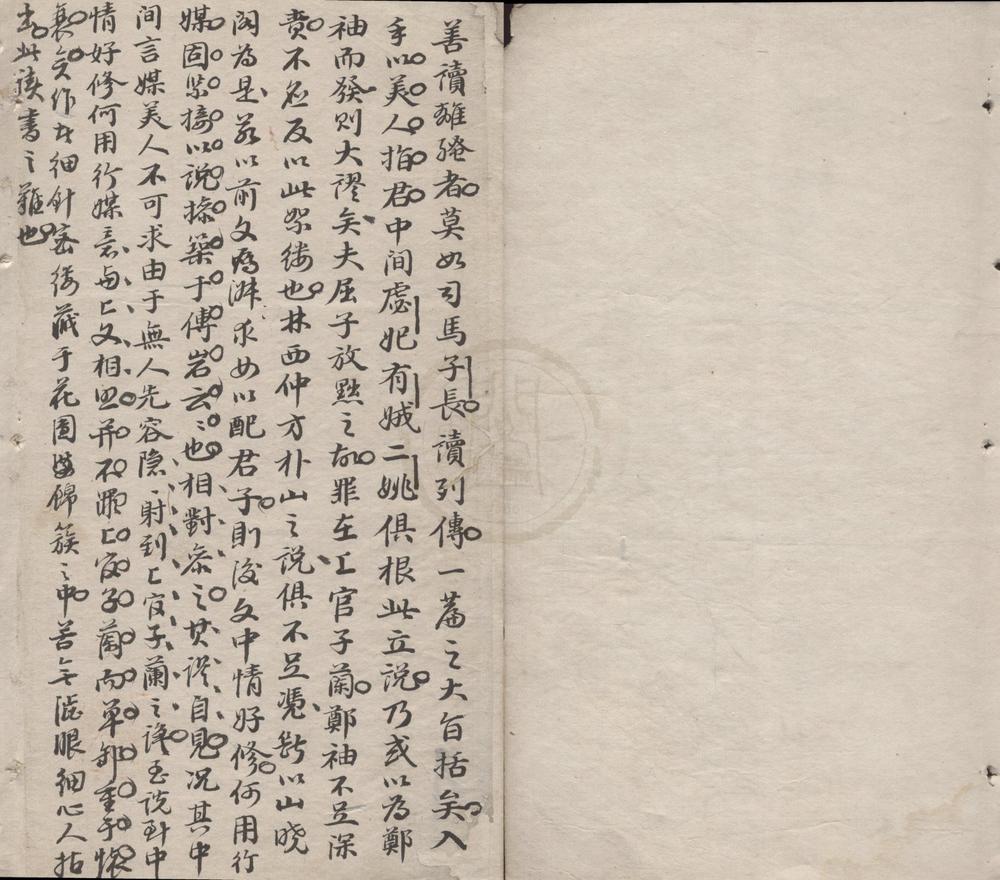 善讀離騷者莫如司馬子長讀列傳一篇之大旨括矣入
手以美人指君中间虙妃有娀二姚俱根此立説乃或以為鄭
袖而發則大謬矣夫屈子放黜之故罪在上官子蘭鄭袖不足深
責不應反以此絮縷也林西仲方朴山之説俱不足憑斷以山曉
閣為是若以前文為淋求女以配君子則後文中情好修何用行
媒固紧接以説操築于傅岩云〻也相對叅之其謬自見况其中
间言媒美人不可求由于無人先容隐〻射到上官子蘭之讒至説到中
情好修何用行媒意与上文相思并不罪上官子蘭而单卸重于懷
襄矣作者细針密縷藏于花團錦簇之中苦無慧眼细心人拈
出此讀書之難也